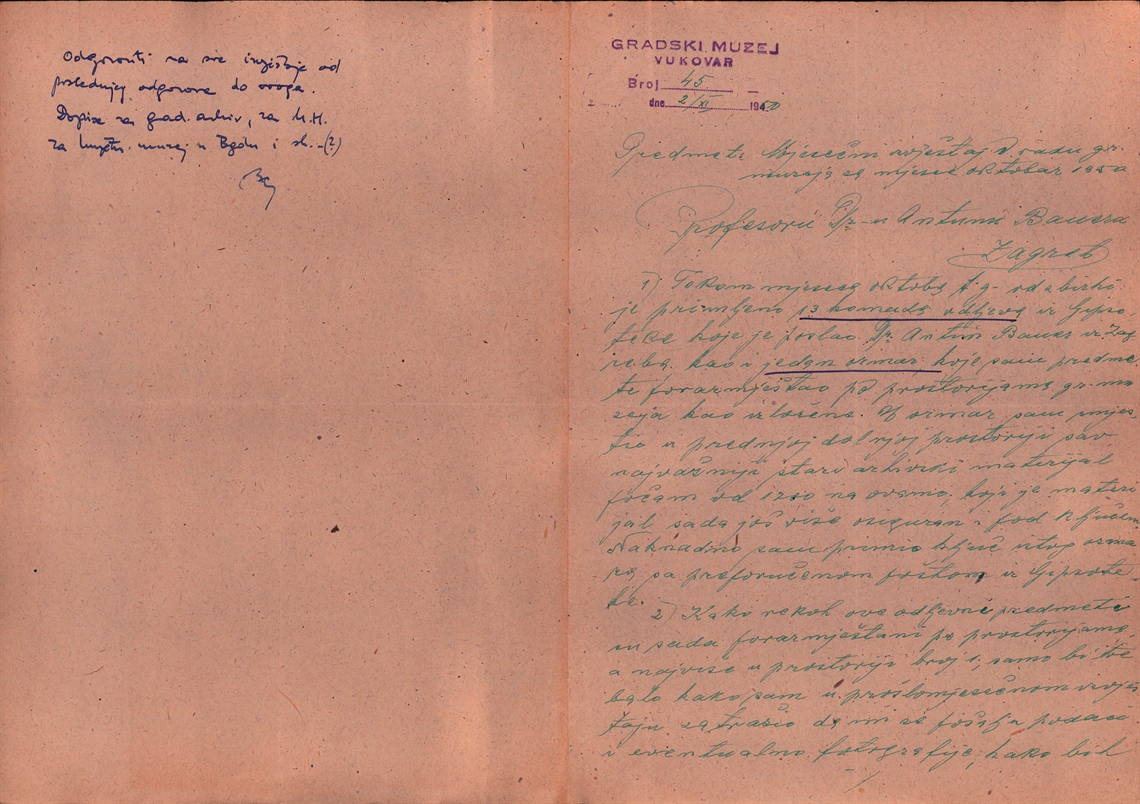 Odgovoriti na sve izvještaje od
poslednjeg odgovora do ovoga.
Dopise za grad. arhiv, za N.H.
za muzej u Bgdu i sl. (?)
GRADSKI MUZEJ
VUKOVAR
Broj 45
dne 2/XI 1950
Predmet: Mjesečni izvještaj o radu gr.
muzeja za mjesec oktobar 1950
Profesoru Dr-u Antunu Baueru
Zagreb
1) Tokom mjeseca oktobra t.g.
je primljeno 13 komada odljeva iz Gipso-
teke koje je poslao Dr. Antun Bauer iz Zag-
reba, kao i jedan ormar, koje sam predme-
te porazmještao po prostorijama gr. mu-
zeja kao izložene. U ormar sam smjes-
tio u prednjoj dolnjoj prostoriji sav
najvažniji stari arhivski materijal
počam od 1200 na ovamo, koji je materi-
jal sada još više osiguran i pod ključem.
Naknadno sam primio ključ istog orma-
ra sa preporučenom poštom iz Gipsote-
ke.
2) Kako rekoh ove odljevne predmete
su sada porazmještani po prostorijama,
a najviše u prostoriji broj 1, samo bi tre-
balo kako sam u prošlomjesečnom izvješ-
taju zatražio da mi se pošalju podaci
i eventualno fotografije, kako bih